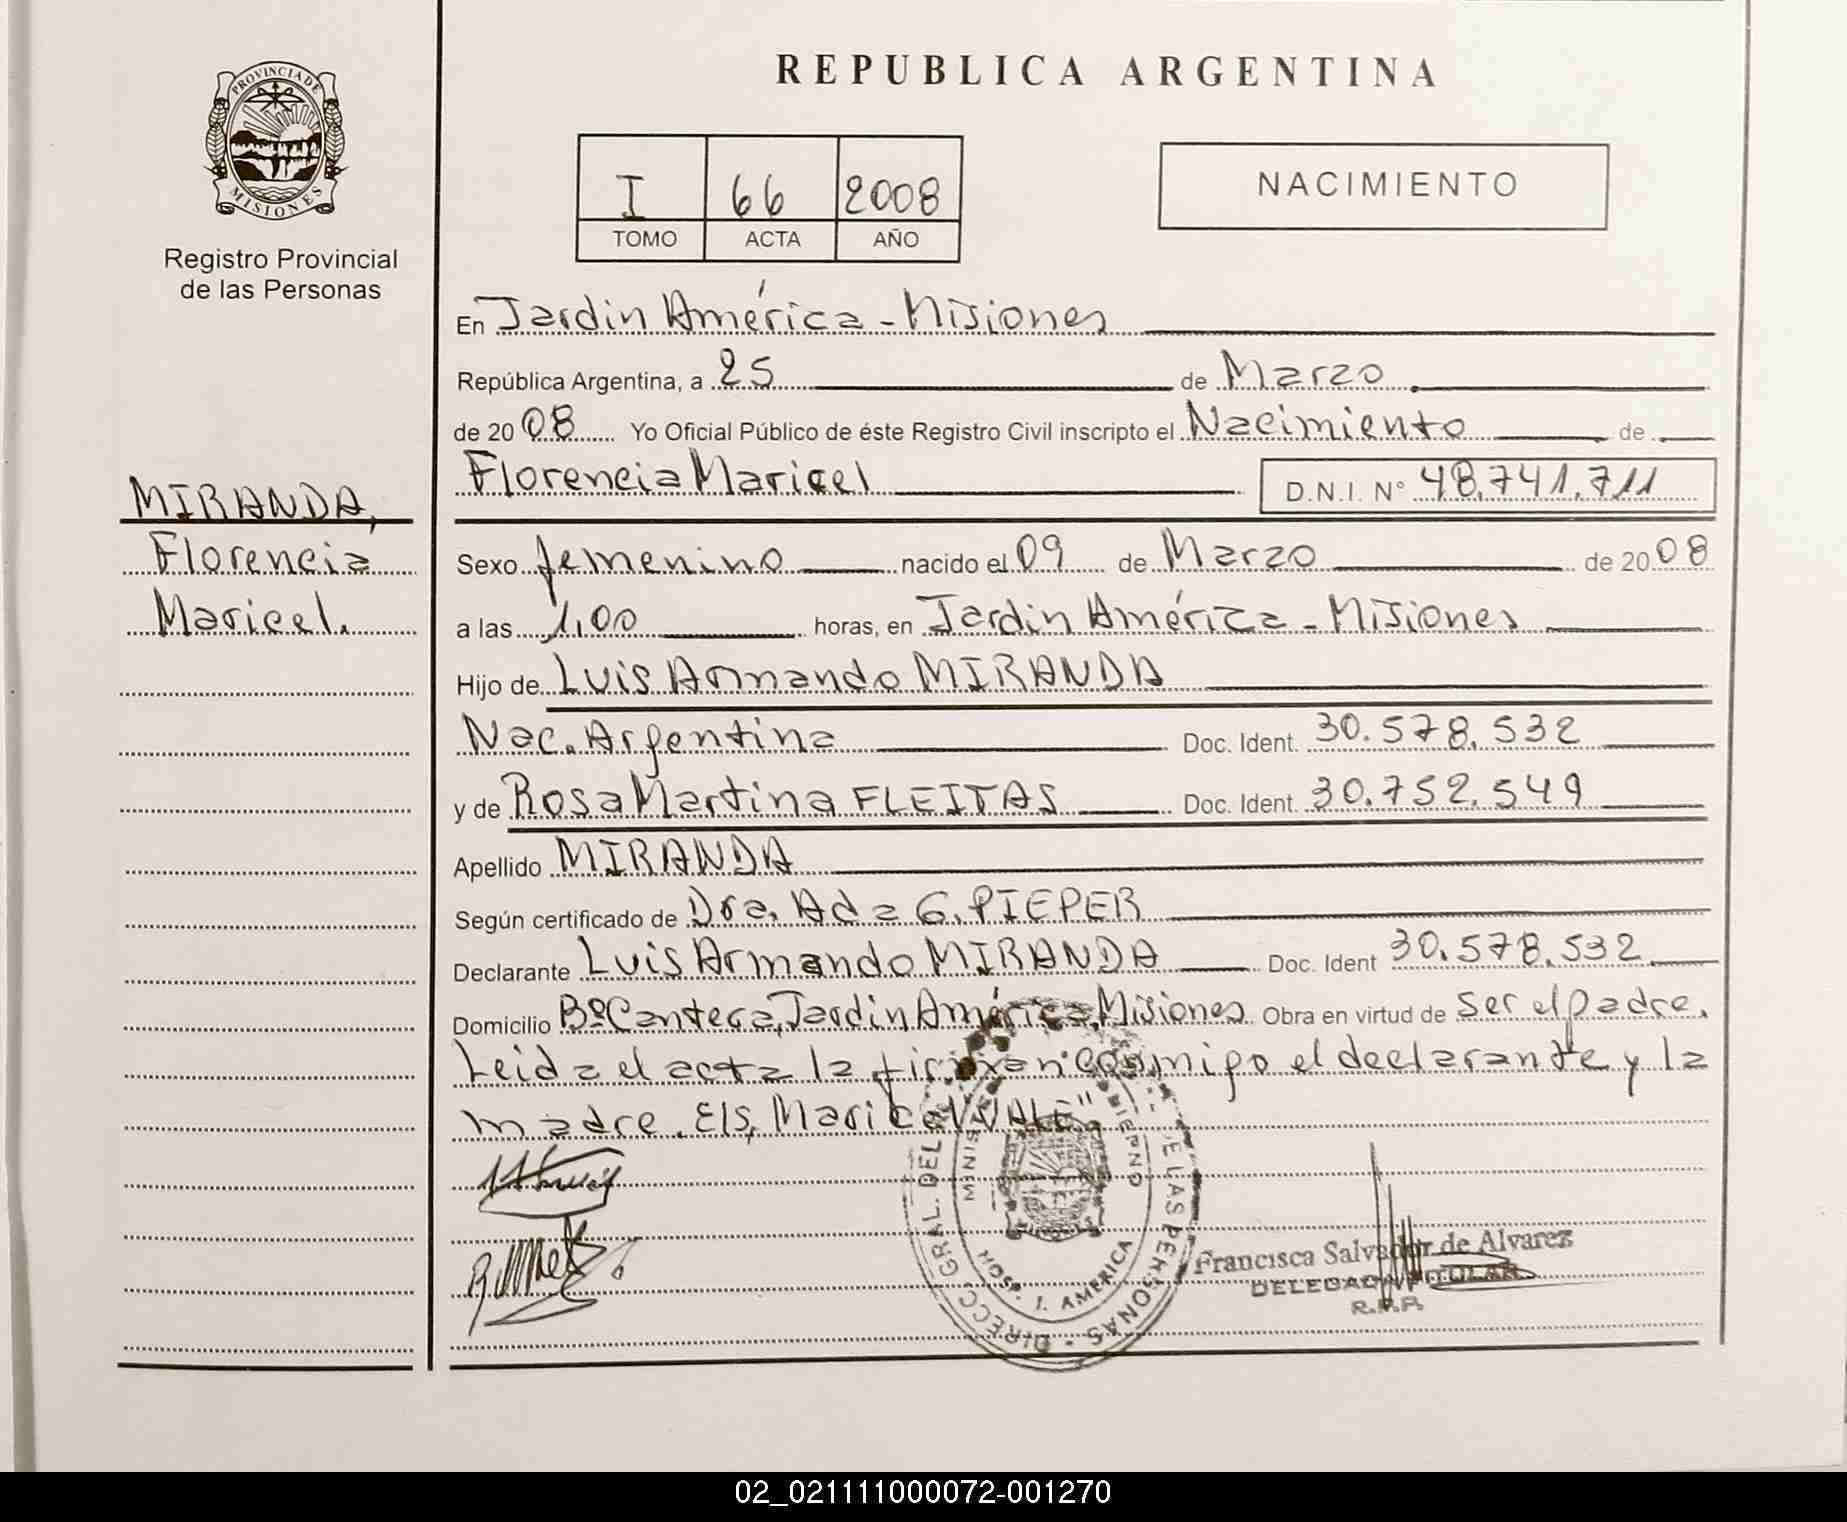 PROVINCIA DE
MISIONES
Registro Provincial
de las Personas
MIRANDA,
Florencia
Maricel.
REPUBLICA ARGENTINA
I 66 2008
TOMO ACTA AÑO
NACIMIENTO
En Jardin América - Misiones
República Argentina, a 25 de Marzo
de 20 08 Yo Oficial Público de éste Registro Civil inscripto el Nacimiento de
Florencia Maricel D.N.I. N° 48.741.711
Sexo femenino nacido el 09 de Marzo de 20 08
a las 1,00 horas, en Jardin América - Misiones
Hijo de Luis Armando MIRANDA
Nac. Argentina Doc. Ident. 30.578.532
y de Rosa Martina FLEITAS Doc. Ident. 30.752.549
Apellido MIRANDA
Según certificado de Dra. Ada G. PIEPER
Declarante Luis Armando MIRANDA Doc. Ident 30.578.532
Domicilio Bº Cantera, Jardin América, Misiones Obra en virtud de ser el padre.
Leida el acta la firman conmigo el declarante y la
madre. E/s, Maricel "VALE"
DIRECC. GRAL. DEL DE LAS PERSONAS
HOSP. J. AMERICA
Francisca Salvador de Alvarez
DELEGADA TITULAR
R.P.P.
02_021111000072-001270